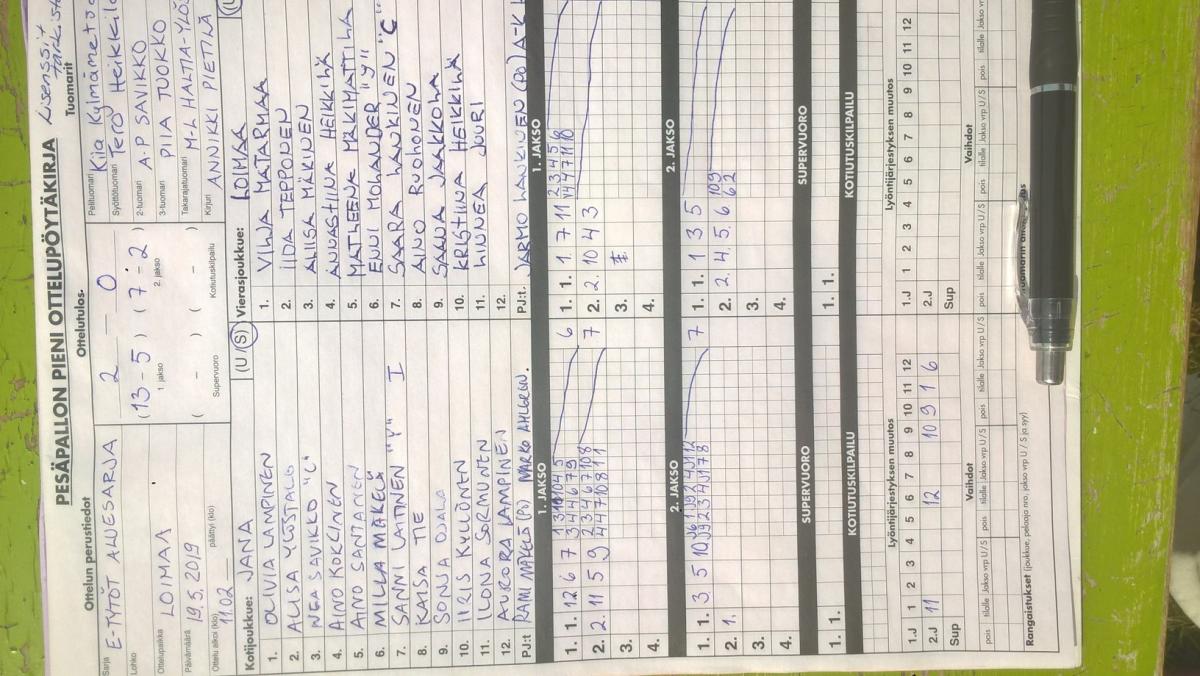 PESÄPALLON PIENI OTTELUPÖYTÄKIRJA
Ottelun perustiedot
Sarja E-TYTÖT ALUESARJA
Lohko
Ottelupaikka LOIMAA
Päivämäärä 19.5.2019
Ottelu alkoi (klo) 11.02 päättyi (klo)
Ottelutulos
2 - 0
(13 - 5) (7 - 2)
1. jakso 2. jakso
( - ) ( - )
Supervuoro Kotiutuskilpailu
Tuomarit
Pelituomari
Syöttötuomari Tero
2-tuomari A-P SAVIKKO
3-tuomari PIIA TUOKKO
Takarajatuomari
Kirjuri ANNIKKI PIETILÄ
Kotijoukkue: JANA (U/S)
1. OLIVIA LAMPINEN
2. ALISA YLÖSTALO
3. NEA SAVIKKO "C"
4. AINO KOKKINEN
5. AINO SANTANEN
6. MILLA MÄKELÄ
7. SANNI LAITINEN "Y" I
8. KAISA TIE
9. SONJA OJALA
10. IIRIS KYLLÖNEN
11. ILONA SORMUNEN
12. AURORA LAMPINEN
PJ:t RAMI MÄKELÄ (PJ) MARKO AHLGREN.
Vierasjoukkue: LOIMAA
1. VILJA MATARMAA
2. IIDA TEPPONEN
3. ALIISA MÄKINEN
4. ANNASTIINA HEIKKILÄ
5. MATLEENA MÄKIMATTILA
6. ENNI MOLANDER "Y"
7. SAARA LANKINEN "C"
8. AINO RUOHONEN
9. SAANA JAAKKOLA
10. KRISTIINA HEIKKILÄ
11. LINNEA JUURI
12.
PJ:t. JARMO LANKINEN (PJ)
1. JAKSO
1. 1. 12 6 7
6
2. 11 5 9
7
3.
4.
1. JAKSO
1. 1. 1 7 11
2. 10 4 3
3.
4.
2. JAKSO
1. 1. 3 5 10
7
2. 1.
3.
4.
2. JAKSO
1. 1. 1 3 5
2. 4. 5. 6.
3.
4.
SUPERVUORO
1. 1.
SUPERVUORO
1. 1.
KOTIUTUSKILPAILU
KOTIUTUSKILPAILU
Lyöntijärjestyksen muutos
1 2 3 4 5 6 7 8 9 10 11 12
1.J
2.J 11 12 10 9 1 6
Sup
Lyöntijärjestyksen muutos
1 2 3 4 5 6 7 8 9 10 11 12
1.J
2.J
Sup
Vaihdot
pois tilalle Jakso vrp U/S pois tilalle Jakso vrp U/S pois tilalle Jakso vrp U/S
Vaihdot
pois tilalle Jakso vrp U/S pois tilalle Jakso vrp U/S
Rangaistukset (joukkue, pelaaja nro, jakso vrp U / S ja syy)